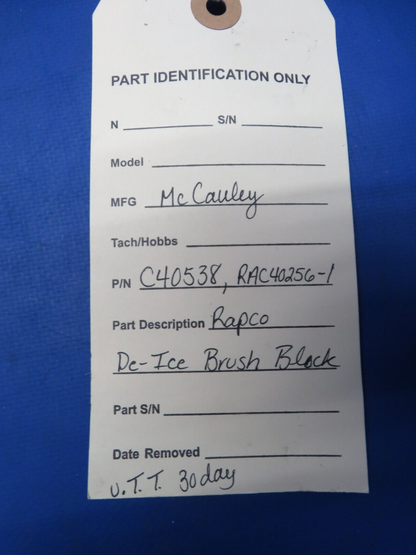 PART IDENTIFICATION ONLY
N ____________ S/N ____________
Model ____________
MFG McCauley
Tach/Hobbs ____________
P/N C40538, RAC40256-1
Part Description Rapco
De-Ice Brush Block
Part S/N ____________
Date Removed ____________
U.T.T. 30 day